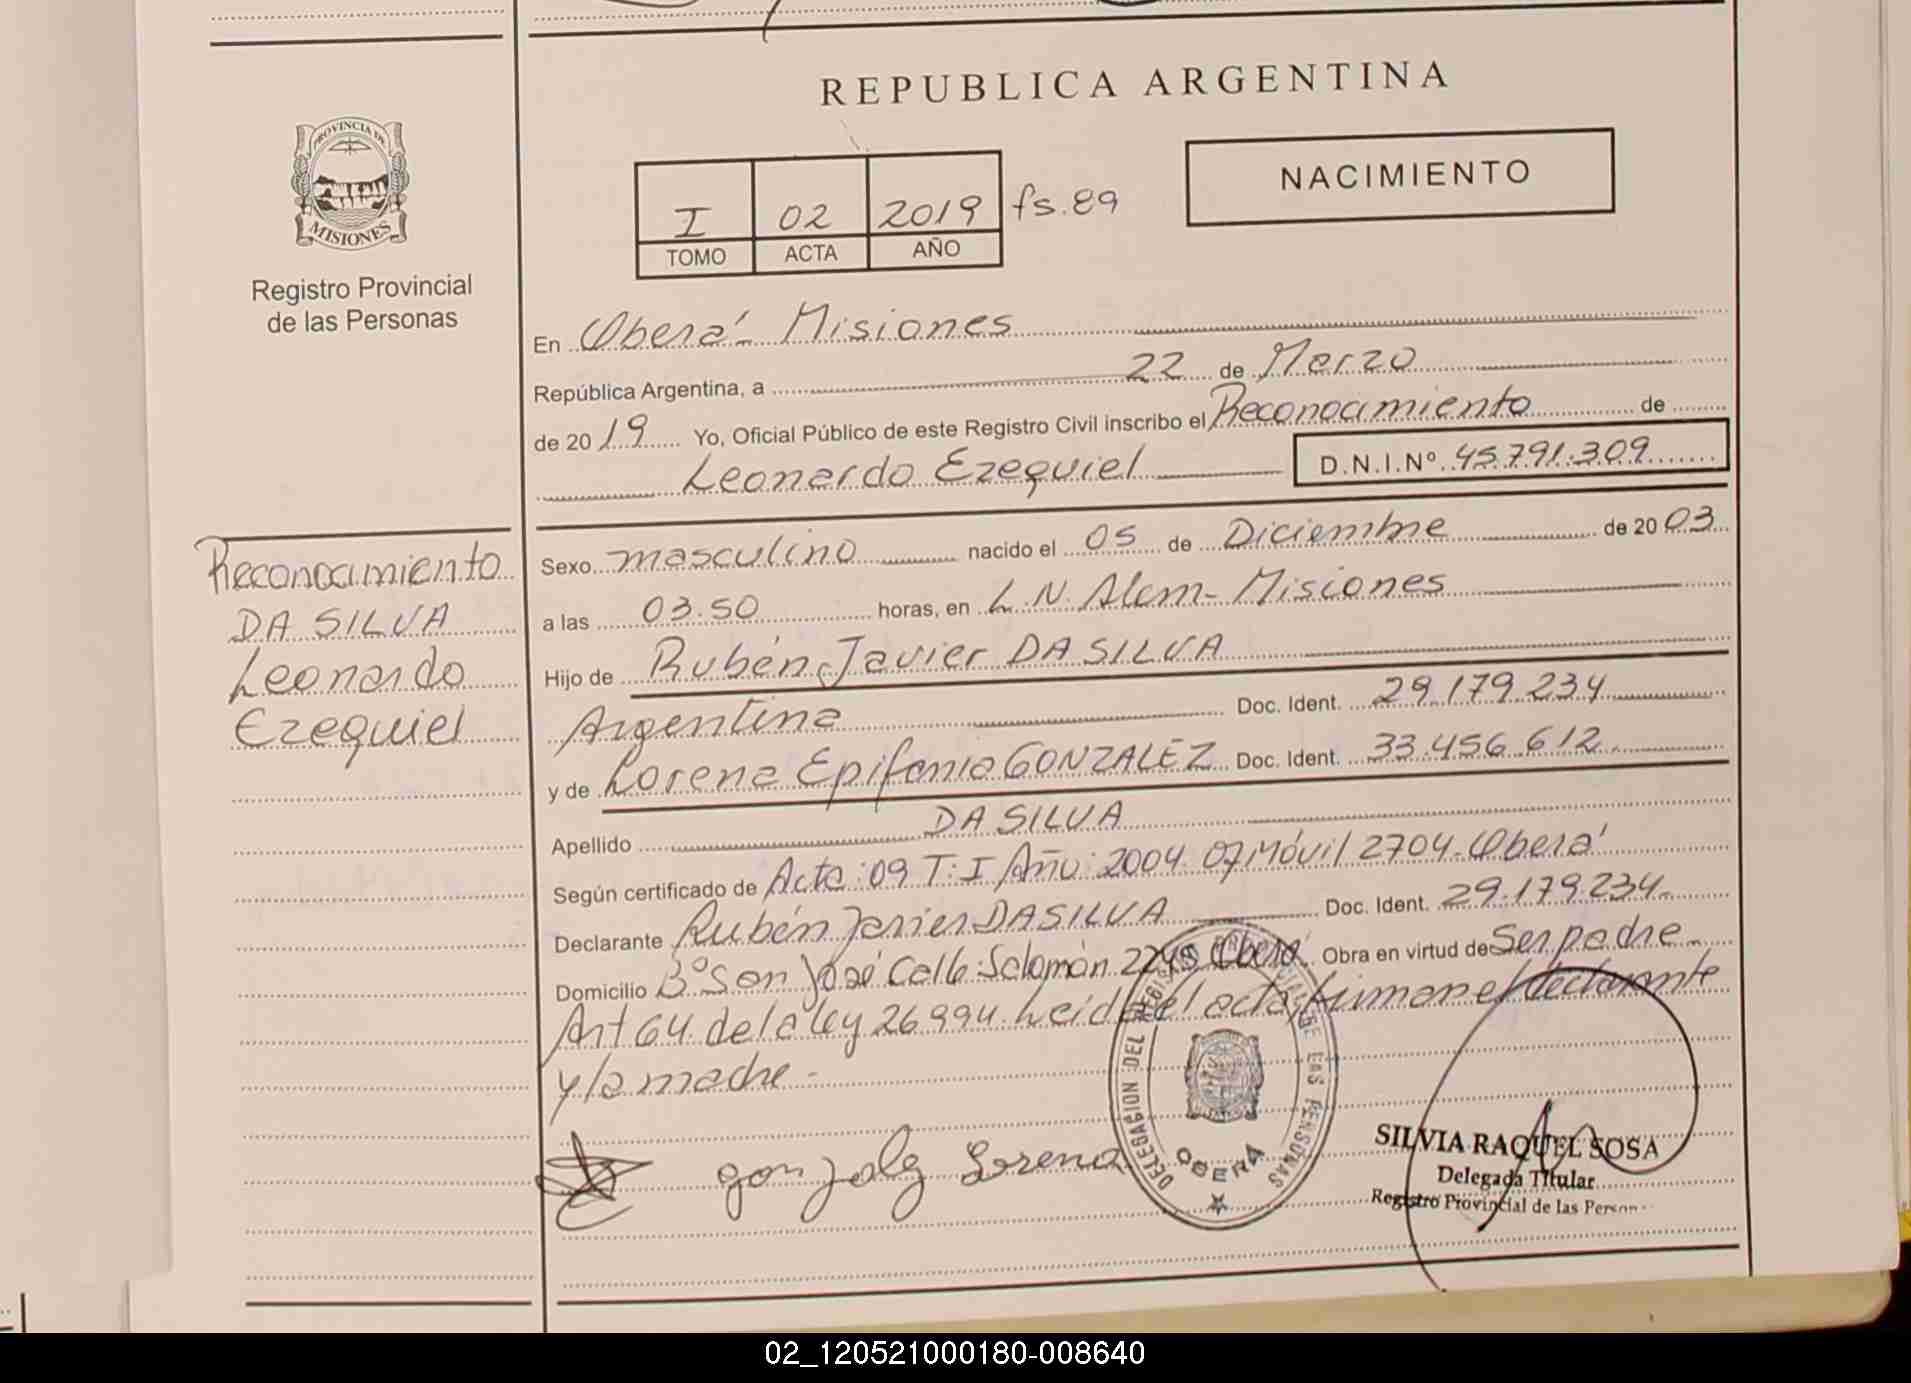 REPUBLICA ARGENTINA
PROVINCIA DE
MISIONES
Registro Provincial
de las Personas
NACIMIENTO
I 02 2019 fs.89
TOMO ACTA AÑO
En Oberá - Misiones
República Argentina, a 22 de Marzo
de 2019 Yo, Oficial Público de este Registro Civil inscribo el Reconocimiento de
Leonardo Ezequiel D.N.I.Nº 45.791.309
Reconocimiento
DA SILVA
Leonardo
Ezequiel
Sexo masculino nacido el 05 de Diciembre de 2003
a las 03.50 horas, en L.N. Alem - Misiones
Hijo de Rubén Javier DA SILVA
Argentina Doc. Ident. 29.179.234
y de Lorena Epifania GONZALEZ Doc. Ident. 33.456.612
Apellido DA SILVA
Según certificado de Acta: 09 T: I Año: 2004. 07 Móvil 2704 - Oberá
Declarante Rubén Javier DA SILVA Doc. Ident. 29.179.234
Domicilio Bº San José Calle: Salomón 2245 Oberá Obra en virtud de Ser padre
Art 64 de la ley 26994. Leída el acta firman el declarante
y la madre -
gonzalez Lorena
DELEGACION DEL REGISTRO PROVINCIAL DE LAS PERSONAS
OBERÁ
SILVIA RAQUEL SOSA
Delegada Titular
Registro Provincial de las Person
02_120521000180-008640